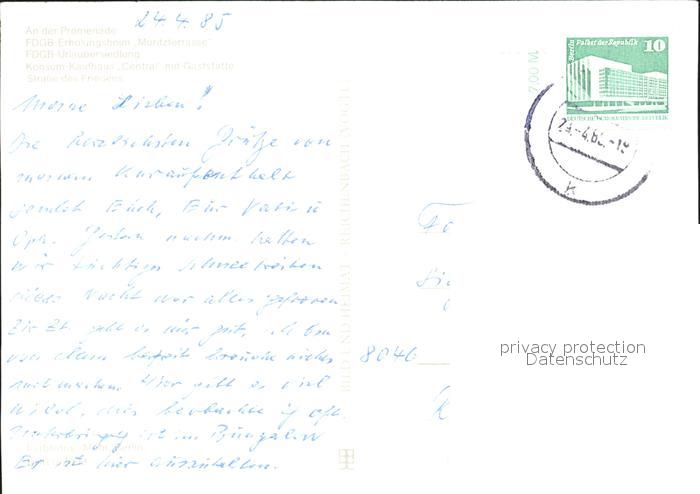 24.4.85
An der Promenade
FDGB-Erholungsheim „Müritzterrasse“
FDGB-Urlaubersiedlung
Konsum-Kaufhaus „Central“ mit Gaststätte
Straße des Friedens
Meine Lieben!
Die herzlichsten Grüße von
meinem Kuraufenthalt
sendet Euch, Eur Vati u
Opa. Gestern nachm. hatten
wir richtiges Schneetreiben
diese Nacht war alles gefroren
Zur Zt. geht es mir gut, ich bin
von dem
mitmachen. Hier gibt es viel
Wild, dies beobachte ich oft.
Unterbringg ist im Bungalow
Es ist hier auszuhalten.
BILD UND HEIMAT REICHENBACH
7,00 M
Berlin Palast der Republik
10
DEUTSCHE DEMOKRATISCHE REPUBLIK
k
8046
K
privacy protection
Datenschutz